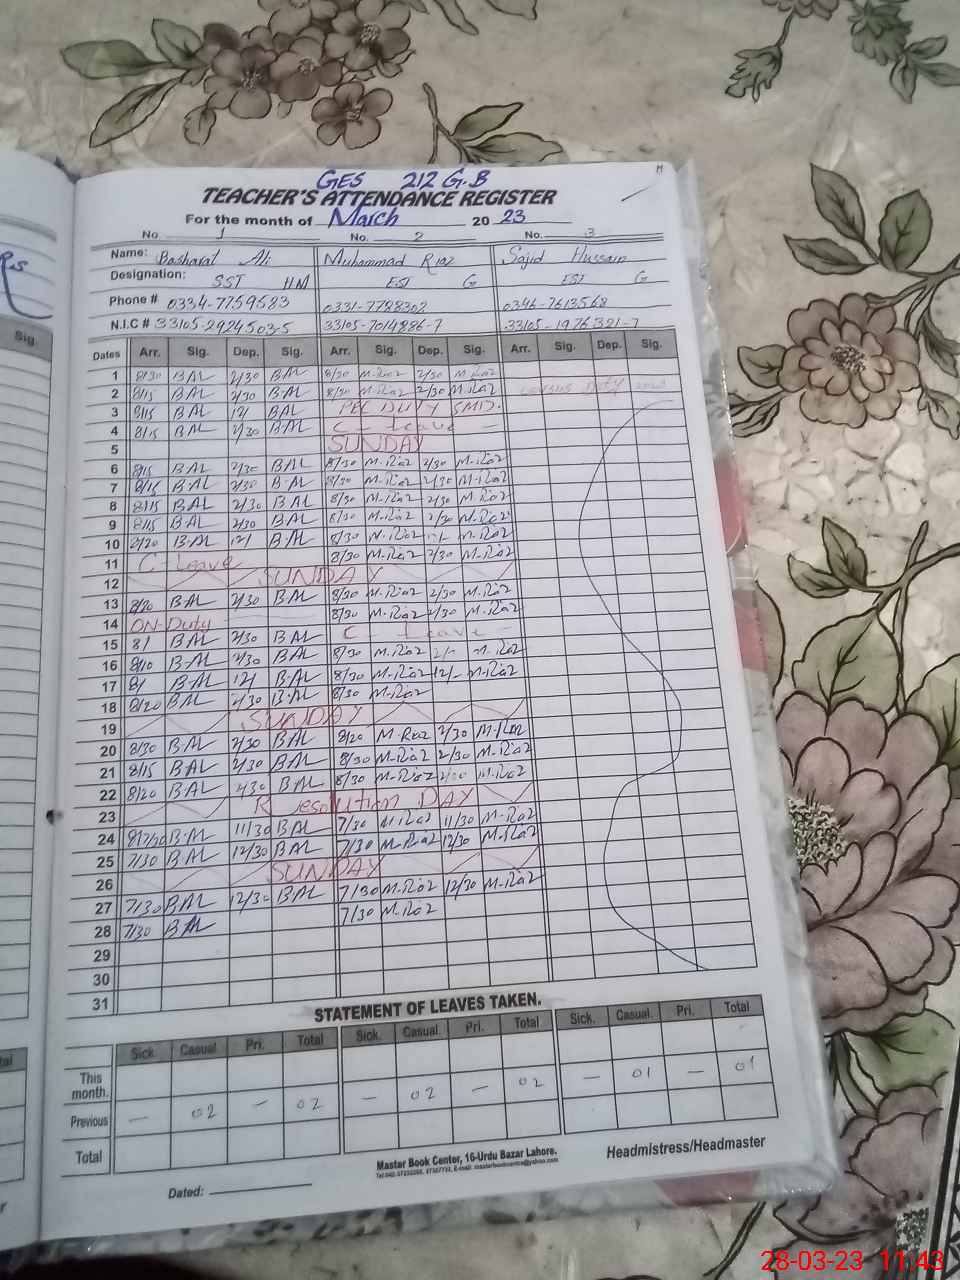 GES 212 G.B
TEACHER'S ATTENDANCE REGISTER
For the month of March 2023
No. 1 No. 2 No. 3
Name: Basharat Ali Muhammad Riaz Sajid Hussain
Designation: SST HM EST G EST G
Phone # 0334-7759583 0331-7788302 0346-7613568
N.I.C # 33105-2924503-5 33105-7014886-7 33105-1976321-7
Sig.
Dates Arr. Sig. Dep. Sig. Arr. Sig. Dep. Sig. Arr. Sig. Dep. Sig.
1 8/30 BAL 2/30 BAL 8/30 M.Riaz 2/30 M.Riaz
2 8/15 BAL 2/30 BAL 8/30 M.Riaz 2/30 M.Riaz Census Duty
3 8/15 BAL 12/ BAL PEC DUTY SMD.
4 8/15 BAL 2/30 BAL C - leave -
5 SUNDAY
6 8/15 BAL 2/30 BAL 8/30 M.Riaz 2/30 M.Riaz
7 8/15 BAL 2/30 BAL 8/30 M.Riaz 2/30 M.Riaz
8 8/15 BAL 2/30 BAL 8/30 M.Riaz 2/30 M.Riaz
9 8/15 BAL 2/30 BAL 8/30 M.Riaz 2/30 M.Riaz
10 8/20 BAL 12/ BAL 8/30 M.Riaz 12/- M.Riaz
11 C-Leave 8/30 M.Riaz 2/30 M.Riaz
12 SUNDAY
13 8/20 BAL 2/30 BAL 8/30 M.Riaz 2/30 M.Riaz
14 ON-Duty 8/30 M.Riaz 2/30 M.Riaz
15 8/ BAL 2/30 BAL C - Leave -
16 8/10 BAL 2/30 BAL 8/30 M.Riaz M.Riaz
17 8/ BAL 12/ BAL 8/30 M.Riaz 12/- M.Riaz
18 8/20 BAL 2/30 BAL 8/30 M.Riaz
19 SUNDAY
20 8/30 BAL 2/30 BAL 8/20 M.Riaz 2/30 M.Riaz
21 8/15 BAL 2/30 BAL 8/30 M.Riaz 2/30 M.Riaz
22 8/20 BAL 2/30 BAL 8/30 M.Riaz 2/30 M.Riaz
23 Resolution DAY
24 BAL 11/30 BAL 7/30 M.Riaz 11/30 M.Riaz
25 7/30 BAL 12/30 BAL 7/30 M.Riaz 12/30 M.Riaz
26 SUNDAY
27 7/30 BAL 12/30 BAL 7/30 M.Riaz 12/30 M.Riaz
28 7/30 BAL 7/30 M.Riaz
29
30
31
STATEMENT OF LEAVES TAKEN.
Sick. Casual. Pri. Total Sick. Casual. Pri. Total Sick. Casual. Pri. Total
This month.
Previous - 02 - 02 - 02 - 02 - 01 - 01
Total
Master Book Center, 16-Urdu Bazar Lahore.
Headmistress/Headmaster
Dated:
28-03-23 11:43